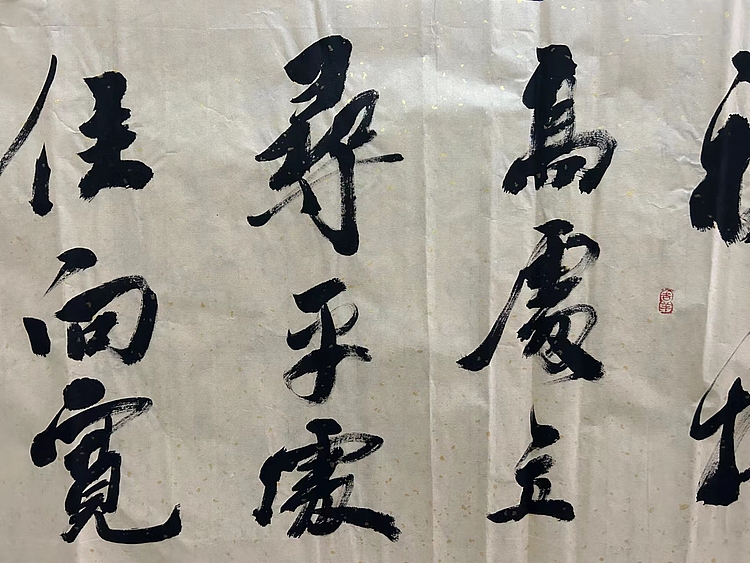 高處立
尋平處
住向寬